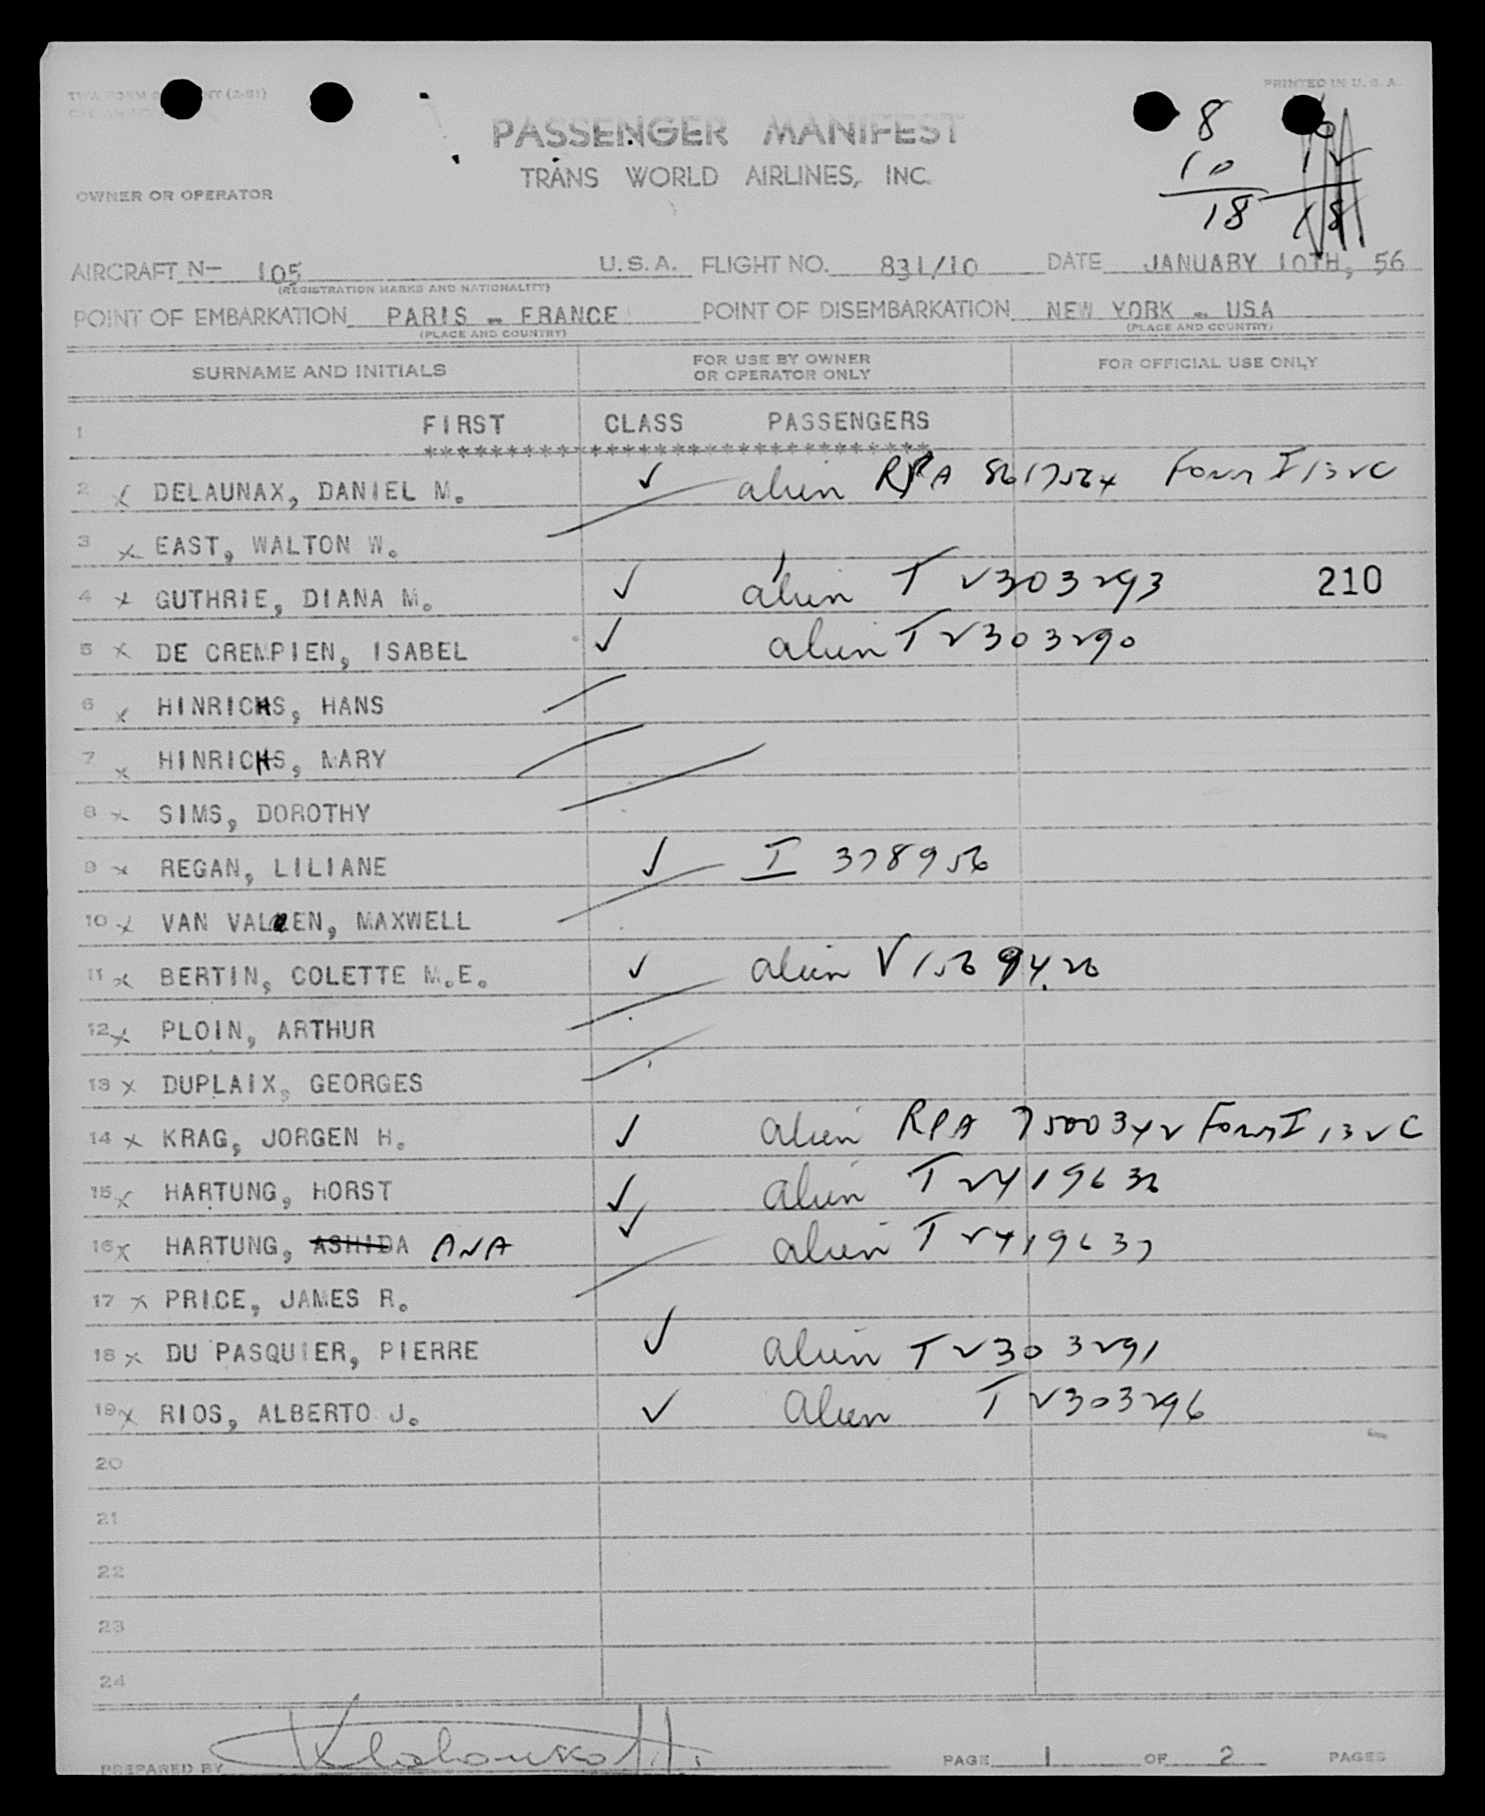 PRINTED IN U. S. A.
PASSENGER MANIFEST
TRANS WORLD AIRLINES, INC.
OWNER OR OPERATOR
8
10 12
18 18
AIRCRAFT N- 105 U.S.A. FLIGHT NO. 831/10 DATE JANUARY 10TH, 56
(REGISTRATION MARKS AND NATIONALITY)
POINT OF EMBARKATION PARIS - FRANCE POINT OF DISEMBARKATION NEW YORK - USA
(PLACE AND COUNTRY) (PLACE AND COUNTRY)
SURNAME AND INITIALS FOR USE BY OWNER OR OPERATOR ONLY FOR OFFICIAL USE ONLY
1 FIRST CLASS PASSENGERS
*******************************
2 x DELAUNAX, DANIEL M. ✓ alien RPA Form I 132C
3 x EAST, WALTON W.
4 x GUTHRIE, DIANA M. ✓ alien T 2303293 210
5 x DE CREMPIEN, ISABEL ✓ alien T 2303290
6 x HINRICHS, HANS
7 x HINRICHS, MARY
8 x SIMS, DOROTHY
9 x REGAN, LILIANE ✓ I 378956
10 x VAN VALZEN, MAXWELL
11 x BERTIN, COLETTE M.E. ✓ alien V 1569426
12 x PLOIN, ARTHUR
13 x DUPLAIX, GEORGES
14 x KRAG, JORGEN H. ✓ alien RPA 7500342 Form I 132C
15 x HARTUNG, HORST ✓ alien T 2419636
16 x HARTUNG, ASHIDA ANA ✓ alien T 2419637
17 x PRICE, JAMES R.
18 x DU PASQUIER, PIERRE ✓ alien T 2303291
19 x RIOS, ALBERTO J. ✓ alien T 2303296
20
21
22
23
24
PREPARED BY PAGE 1 OF 2 PAGES